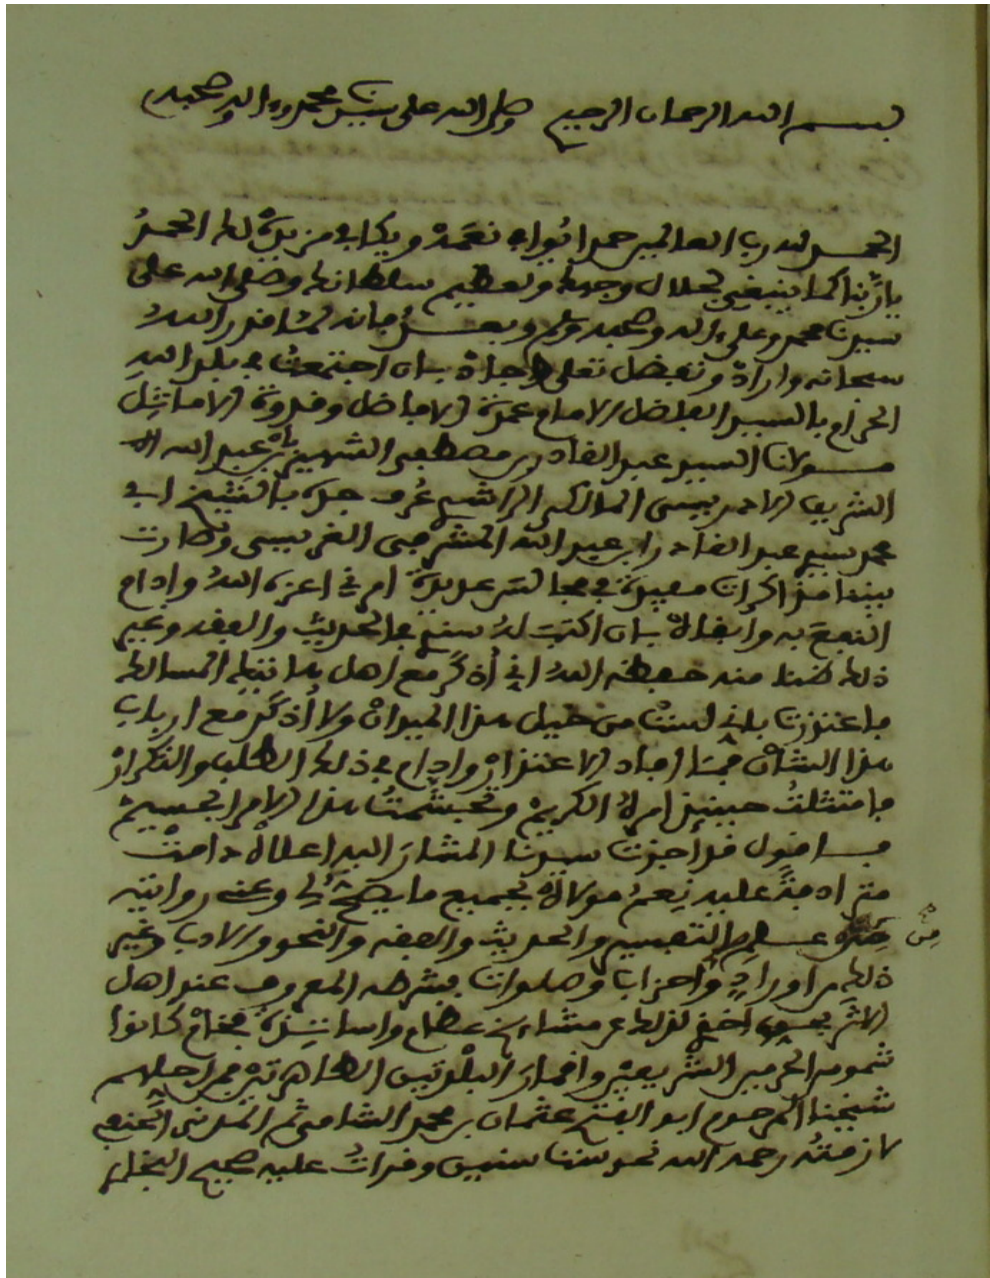 بسم الله الرحمان الرحيم وصلى الله على سيدنا محمد وءاله وصحبه
الحمد لله رب العالمين حمدا يوافي نعمه ويكافي مزيده لك الحمد
ياربنا كما ينبغي لجلال وجهك وعظيم سلطانك وصلى الله على
سيدنا محمد وعلى ءاله وصحبه وسلم وبعد فانه لما قدر الله
سبحانه واراد وتفضل تعلى وجاد بان اجتمعت في بلد الله
الحرام بالسيد الفاضل الامام عمدة الافاضل وقدوة الاماثل
مولانا السيد عبد القادر بن مصطفى الشهير بابن عبد الله
الشريف الادريسي المالكي الراشدي عُرف جده بالشيخ ابي
محمد سيدي عبد القادر ابن عبد الله المشرفي الغريسي وصارت
بيننا مذاكرات مفيدة في مجالس عديدة امرني اعزه الله وادام
النفع به وابقاه بان اكتب له سندي في الحديث والفقه وغير
ذلك ظنا منه حفظه الله اني أذكر مع اهل هاتيك المسالك
فاعتذرت باني لست من خيل هذا الميدان ولا أذكر مع ارباب
هذا الشان فما افاد الاعتذار وادام في ذلك الطلب والتكرار
فامتثلت حينئذ امره الكريم وتجشمت هذا الامر الجسيم
فاقول قد اجزت سيدنا المشار اليه اعلاه دامت
مترادفة عليه نِعمُ مولاه بجميع ما يصح لي وعني روايته
من علم التفسير والحديث والفقه والنحو والادب وغير
ذلك من اوراد واحزاب وصلوات بشرطه المعروف عند اهل
الاثر اخذي لذلك عن مشايخ عظام واساتيذة فخام كانوا
شموس الحرمين الشريفين واقمار البلدتين الطاهرتين فمن اجلهم
شيخنا المرحوم ابو الفتح عثمان بن محمد الشامي ثم المدني الحنفي
لازمته رحمه الله نحو ست سنين وقرات عليه صحيح البخاري